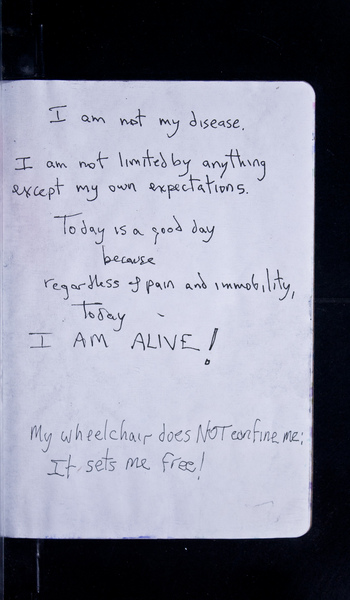 I am not my disease.
I am not limited by anything
except my own expectations.
Today is a good day
because
regardless of pain and immobility,
Today
I AM ALIVE!
My wheelchair does NOT confine me;
It sets me free!